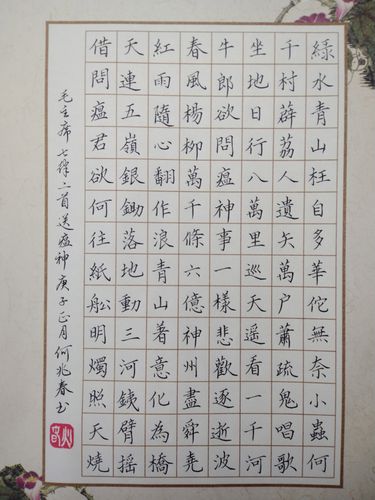 綠水青山枉自多華佗無奈小蟲何
千村薜荔人遺矢萬户蕭疏鬼唱歌
坐地日行八萬里巡天遥看一千河
牛郎欲問瘟神事一樣悲歡逐逝波
春風楊柳萬千條六億神州盡舜堯
紅雨隨心翻作浪青山著意化為橋
天連五嶺銀鋤落地動三河銕臂摇
借問瘟君欲何往紙舩明燭照天燒
毛主席七律二首送瘟神庚子正月何兆春书